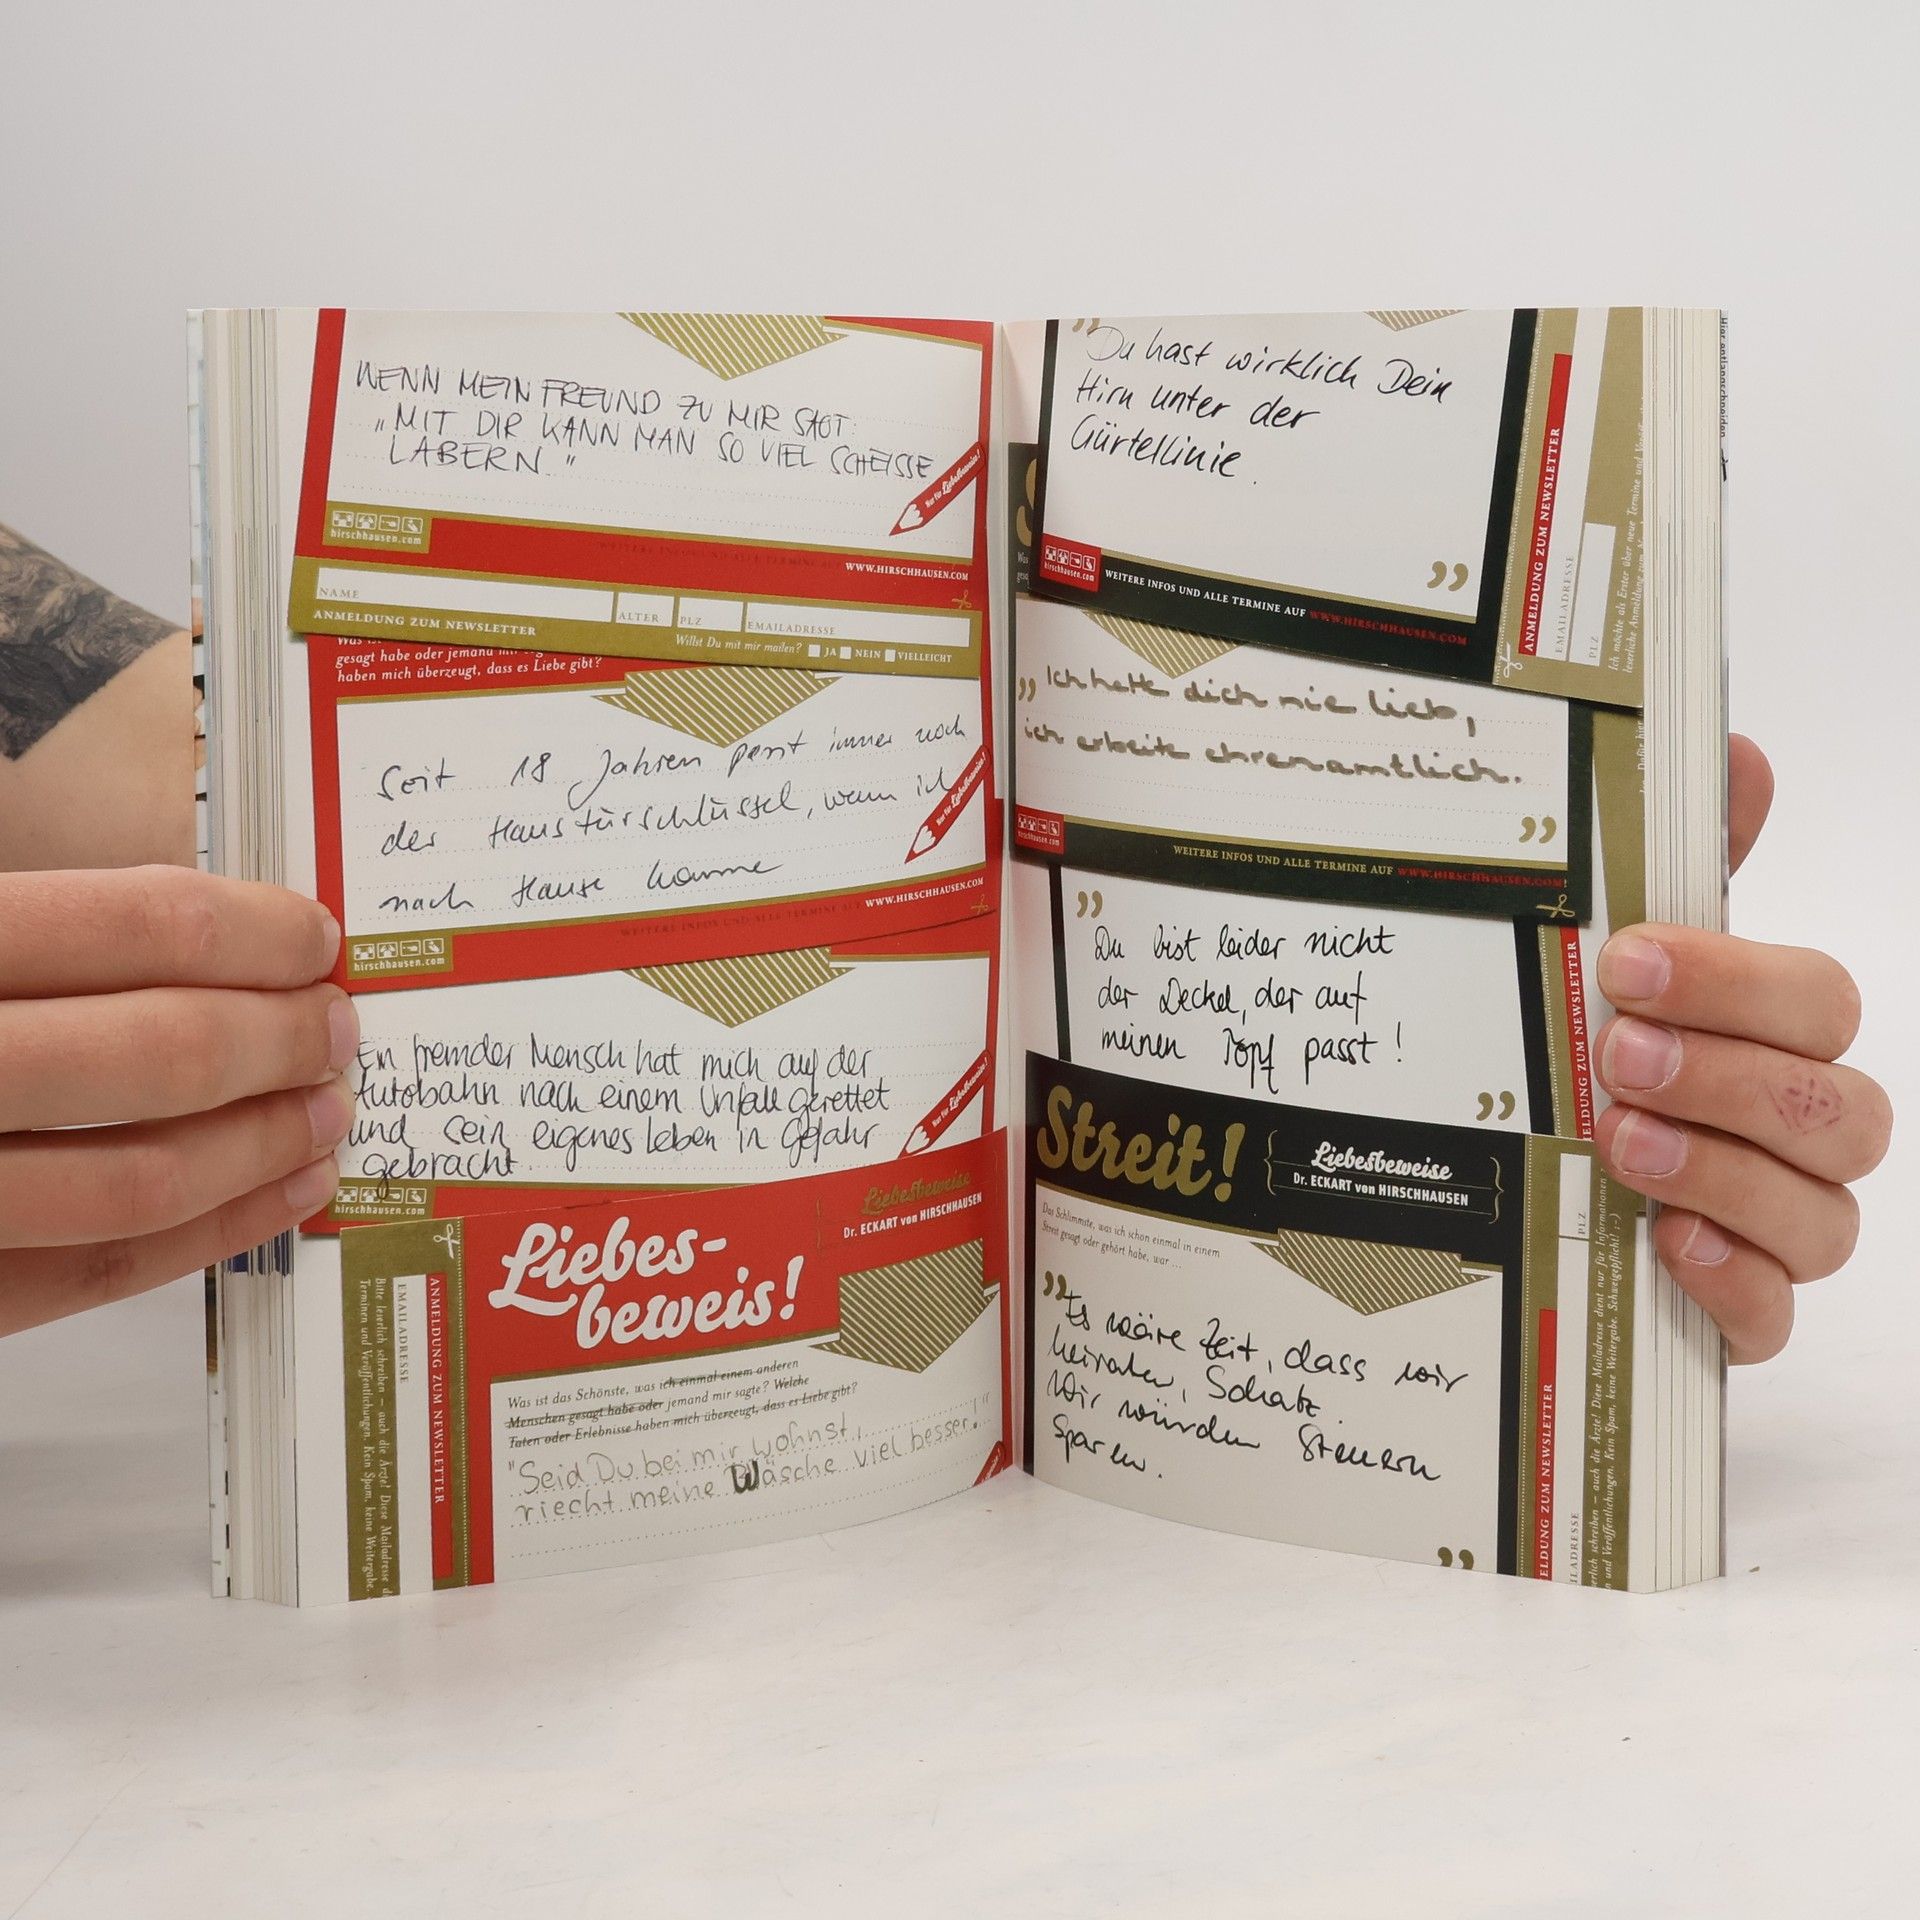 WENN MEIN FREUND ZU MIR SAGT:
„MIT DIR KANN MAN SO VIEL SCHEISSE
LABERN"
Nur für Liebesbeweis!
hirschhausen.com
WEITERE INFOS UND ALLE TERMINE AUF WWW.HIRSCHHAUSEN.COM
NAME
ALTER
PLZ
EMAILADRESSE
ANMELDUNG ZUM NEWSLETTER
Willst Du mit mir mailen? JA NEIN VIELLEICHT
gesagt habe oder jemand mir
haben mich überzeugt, dass es Liebe gibt?
Seit 18 Jahren passt immer noch
der Haustürschlüssel, wenn ich
nach Hause komme
Nur für Liebesbeweis!
WEITERE INFOS UND ALLE TERMINE AUF WWW.HIRSCHHAUSEN.COM
hirschhausen.com
Ein fremder Mensch hat mich auf der
Autobahn nach einem Unfall gerettet
und sein eigenes Leben in Gefahr
gebracht.
Nur für Liebesbeweis!
hirschhausen.com
Liebesbeweise
Dr. ECKART von HIRSCHHAUSEN
Liebes-
beweis!
Was ist das Schönste, was ich einmal einem anderen
Menschen gesagt habe oder jemand mir sagte? Welche
Taten oder Erlebnisse haben mich überzeugt, dass es Liebe gibt?
"Seid Du bei mir wohnst,
riecht meine Wäsche viel besser!"
ANMELDUNG ZUM NEWSLETTER
EMAILADRESSE
Bitte leserlich schreiben – auch die Ärzte! Diese Mailadresse
Terminen und Veröffentlichungen. Kein Spam, keine Weitergabe.
„Du hast wirklich Dein
Hirn unter der
Gürtellinie.
”
hirschhausen.com
WEITERE INFOS UND ALLE TERMINE AUF WWW.HIRSCHHAUSEN.COM
ANMELDUNG ZUM NEWSLETTER
EMAILADRESSE
PLZ
Ich möchte als Erster über neue Termine und
leserliche Anmeldung zum
„Ich hatte dich nie lieb,
ich arbeite ehrenamtlich.
”
hirschhausen.com
WEITERE INFOS UND ALLE TERMINE AUF WWW.HIRSCHHAUSEN.COM!
”
Du bist leider nicht
der Deckel, der auf
meinen Topf passt!
”
MELDUNG ZUM NEWSLETTER
Streit!
Liebesbeweise
Dr. ECKART von HIRSCHHAUSEN
Das Schlimmste, was ich schon einmal in einem
Streit gesagt oder gehört habe, war ...
„Es wäre Zeit, dass wir
heiraten, Schatz.
Wir würden Steuern
sparen.
”
ELDUNG ZUM NEWSLETTER
ILADRESSE
PLZ
erlich schreiben – auch die Ärzte! Diese Mailadresse dient nur für Informationen
n und Veröffentlichungen. Kein Spam, keine Weitergabe. Schweigepflicht! :-)